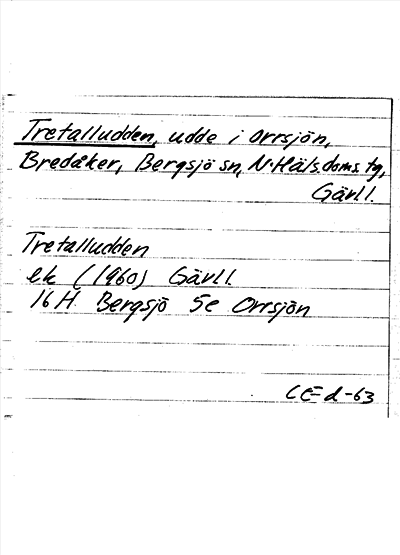 Tretalludden, udde i Orrsjön,
Bredåker, Bergsjö sn, N. Häls. doms. tg,
Gävl l.
Tretalludden
ek (1960) Gävl l.
16 H Bergsjö 5e Orrsjön
d-63